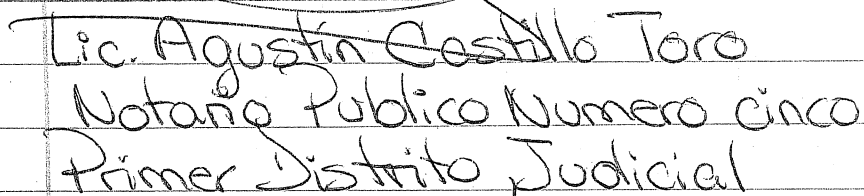 Lic. Agustín Castillo Toro
Notario Publico Numero cinco
Primer Distrito Judicial